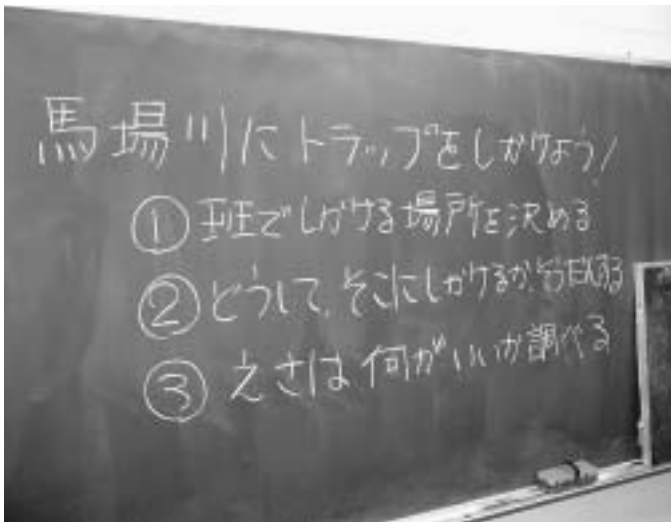 馬場川にトラップをしかけよう!
①班でしかける場所を決める
②どうして、そこにしかけるか、
③えさは何がいいか調べる